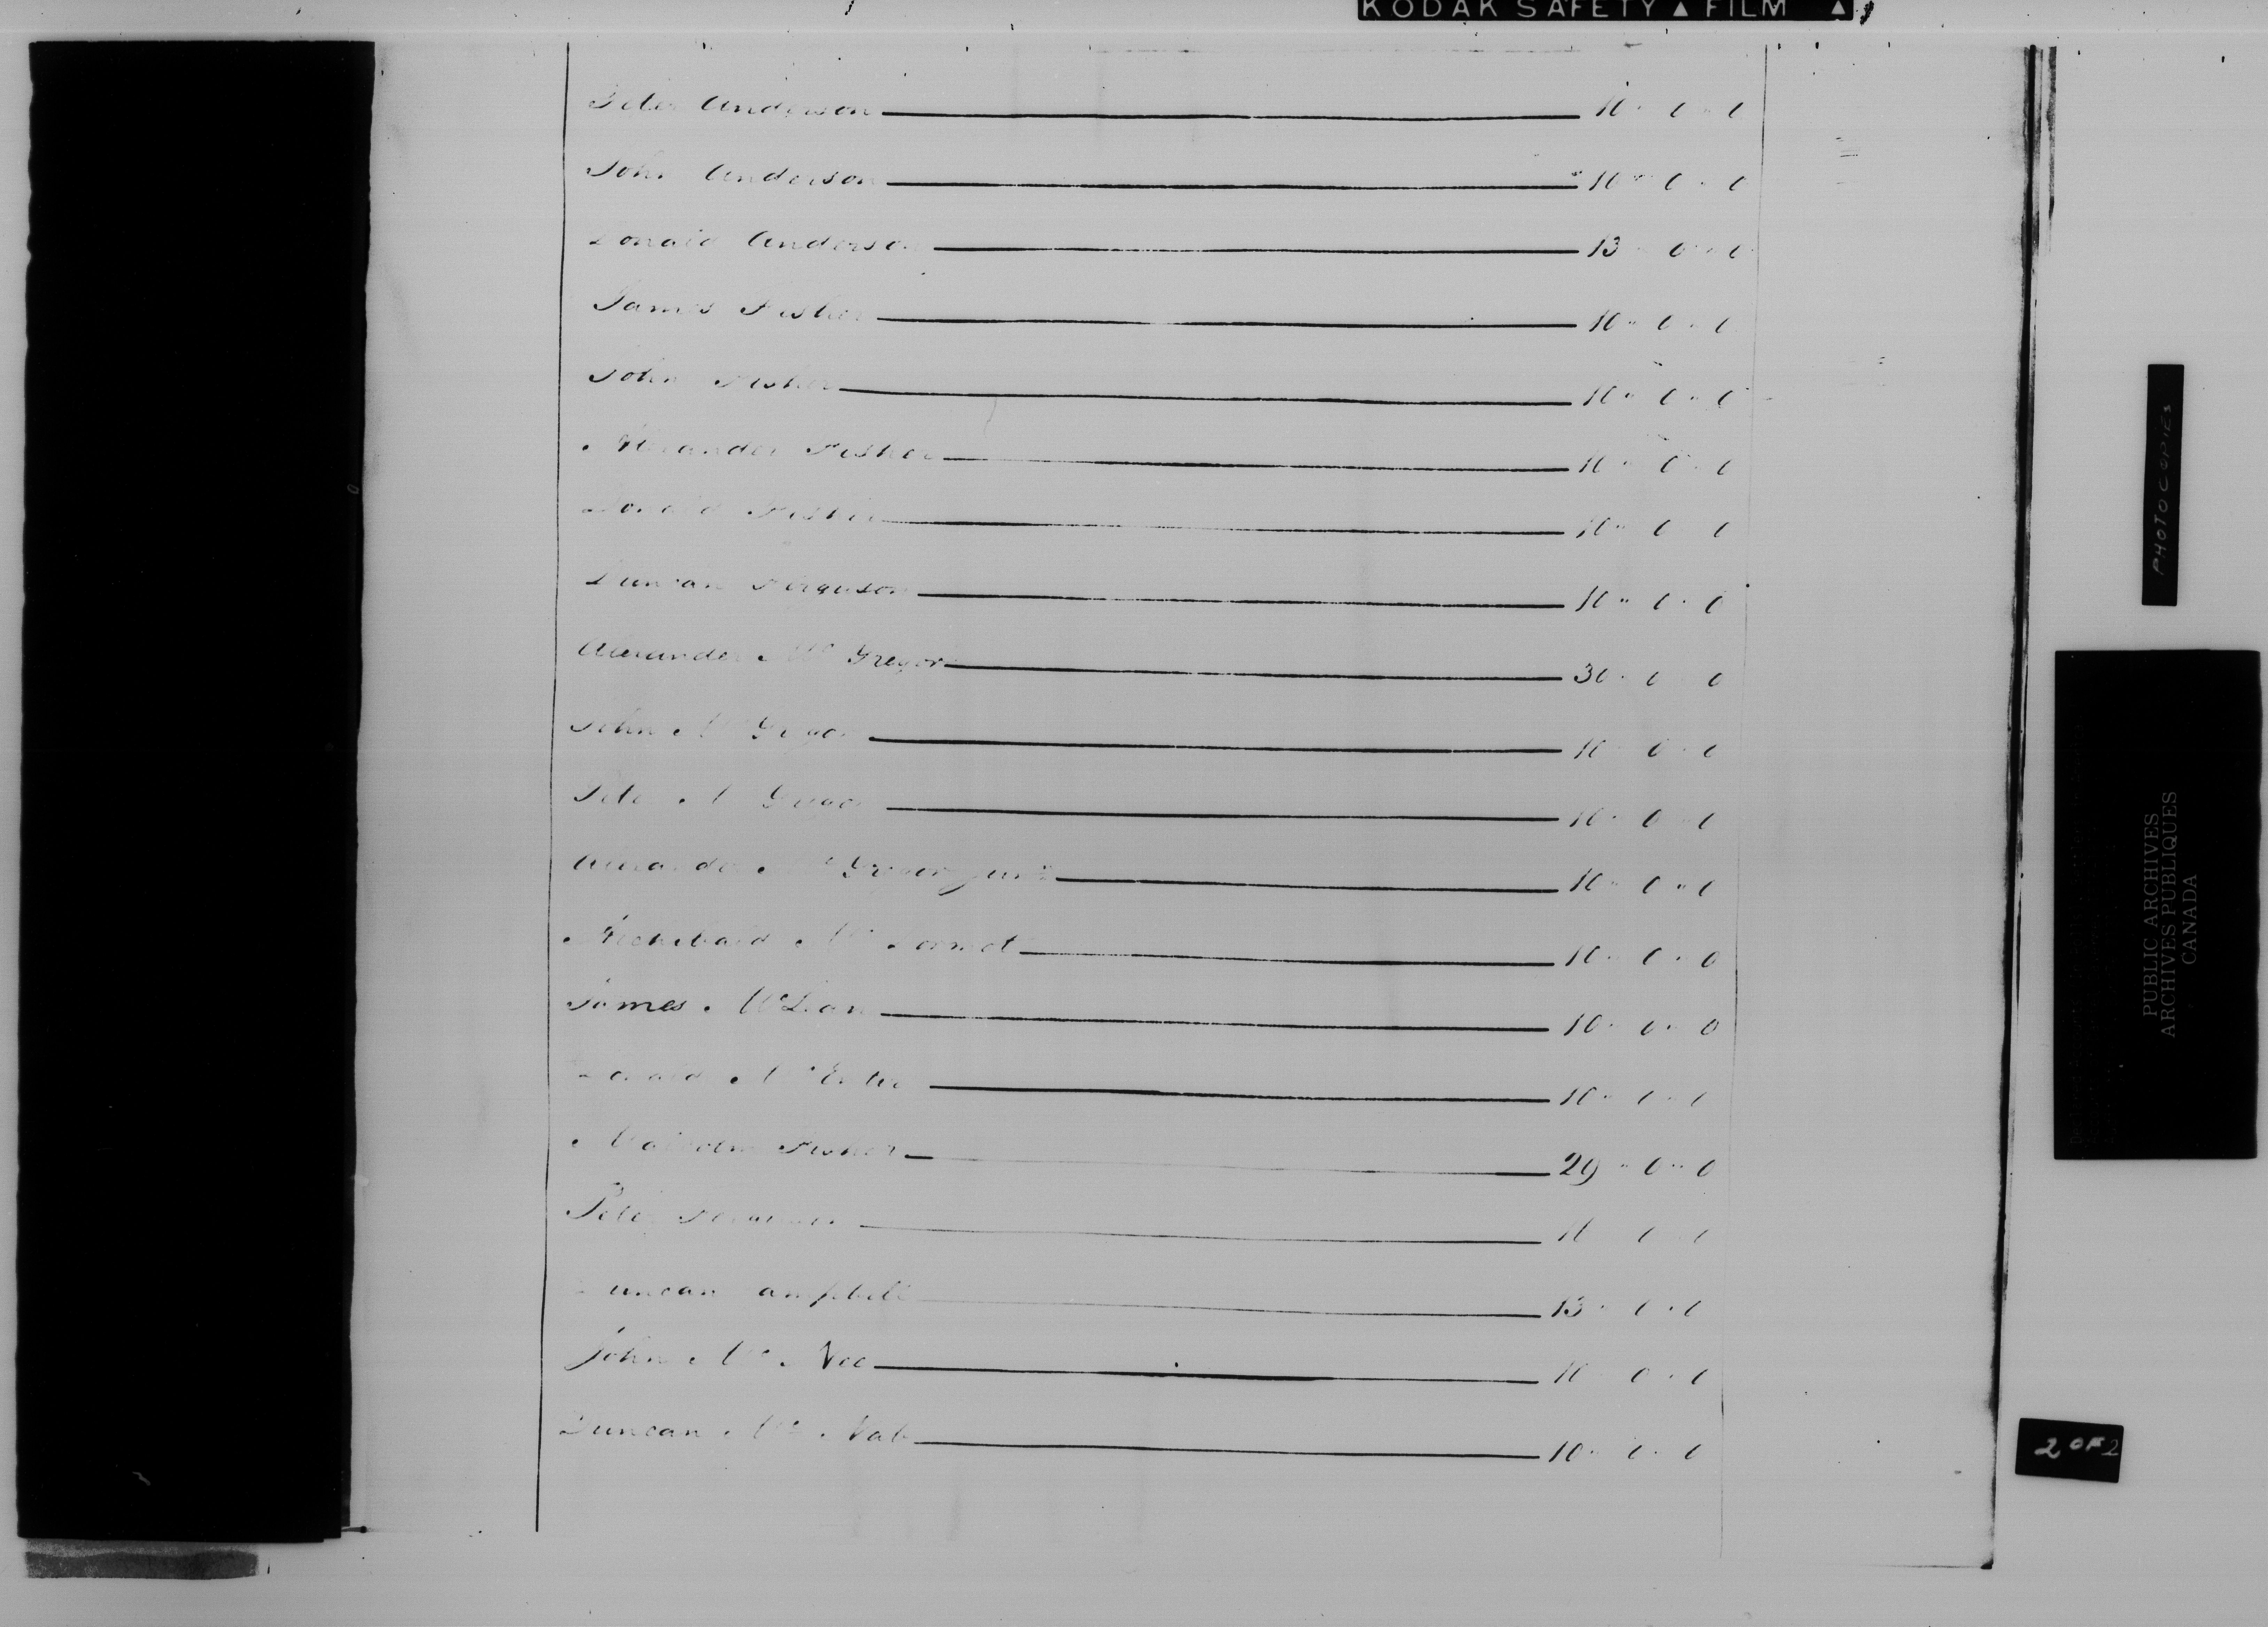 KODAK SAFETY ▲ FILM ▲
Peter Anderson 10 " 0 " 0
John Anderson 10 " 0 " 0
Donald Anderson 13 " 0 " 0
James Fisher 10 " 0 " 0
John Fisher 10 " 0 " 0
Alexander Fisher 10 " 0 " 0
Donald Fisher 10 " 0 0
Duncan Ferguson 10 " 0 " 0
Alexander Mc Gregor 30 " 0 0
John Mc Gregor 10 0 " 0
Peter Mc Gregor 10 " 0 0
Alexander Mc Gregor junr 10 " 0 " 0
Archibald Mc 10 " 0 " 0
James McLean 10 " 0 " 0
Donald Mc 10 " 0 " 0
Malcolm Fisher 29 " 0 " 0
Peter 0 0
Duncan Campbell 13 " 0 " 0
John Mc Nee 10 0 " 0
Duncan Mc Nab 10 " 0 " 0
PHOTOCOPIES
PUBLIC ARCHIVES
ARCHIVES PUBLIQUES
CANADA
2 OF 2